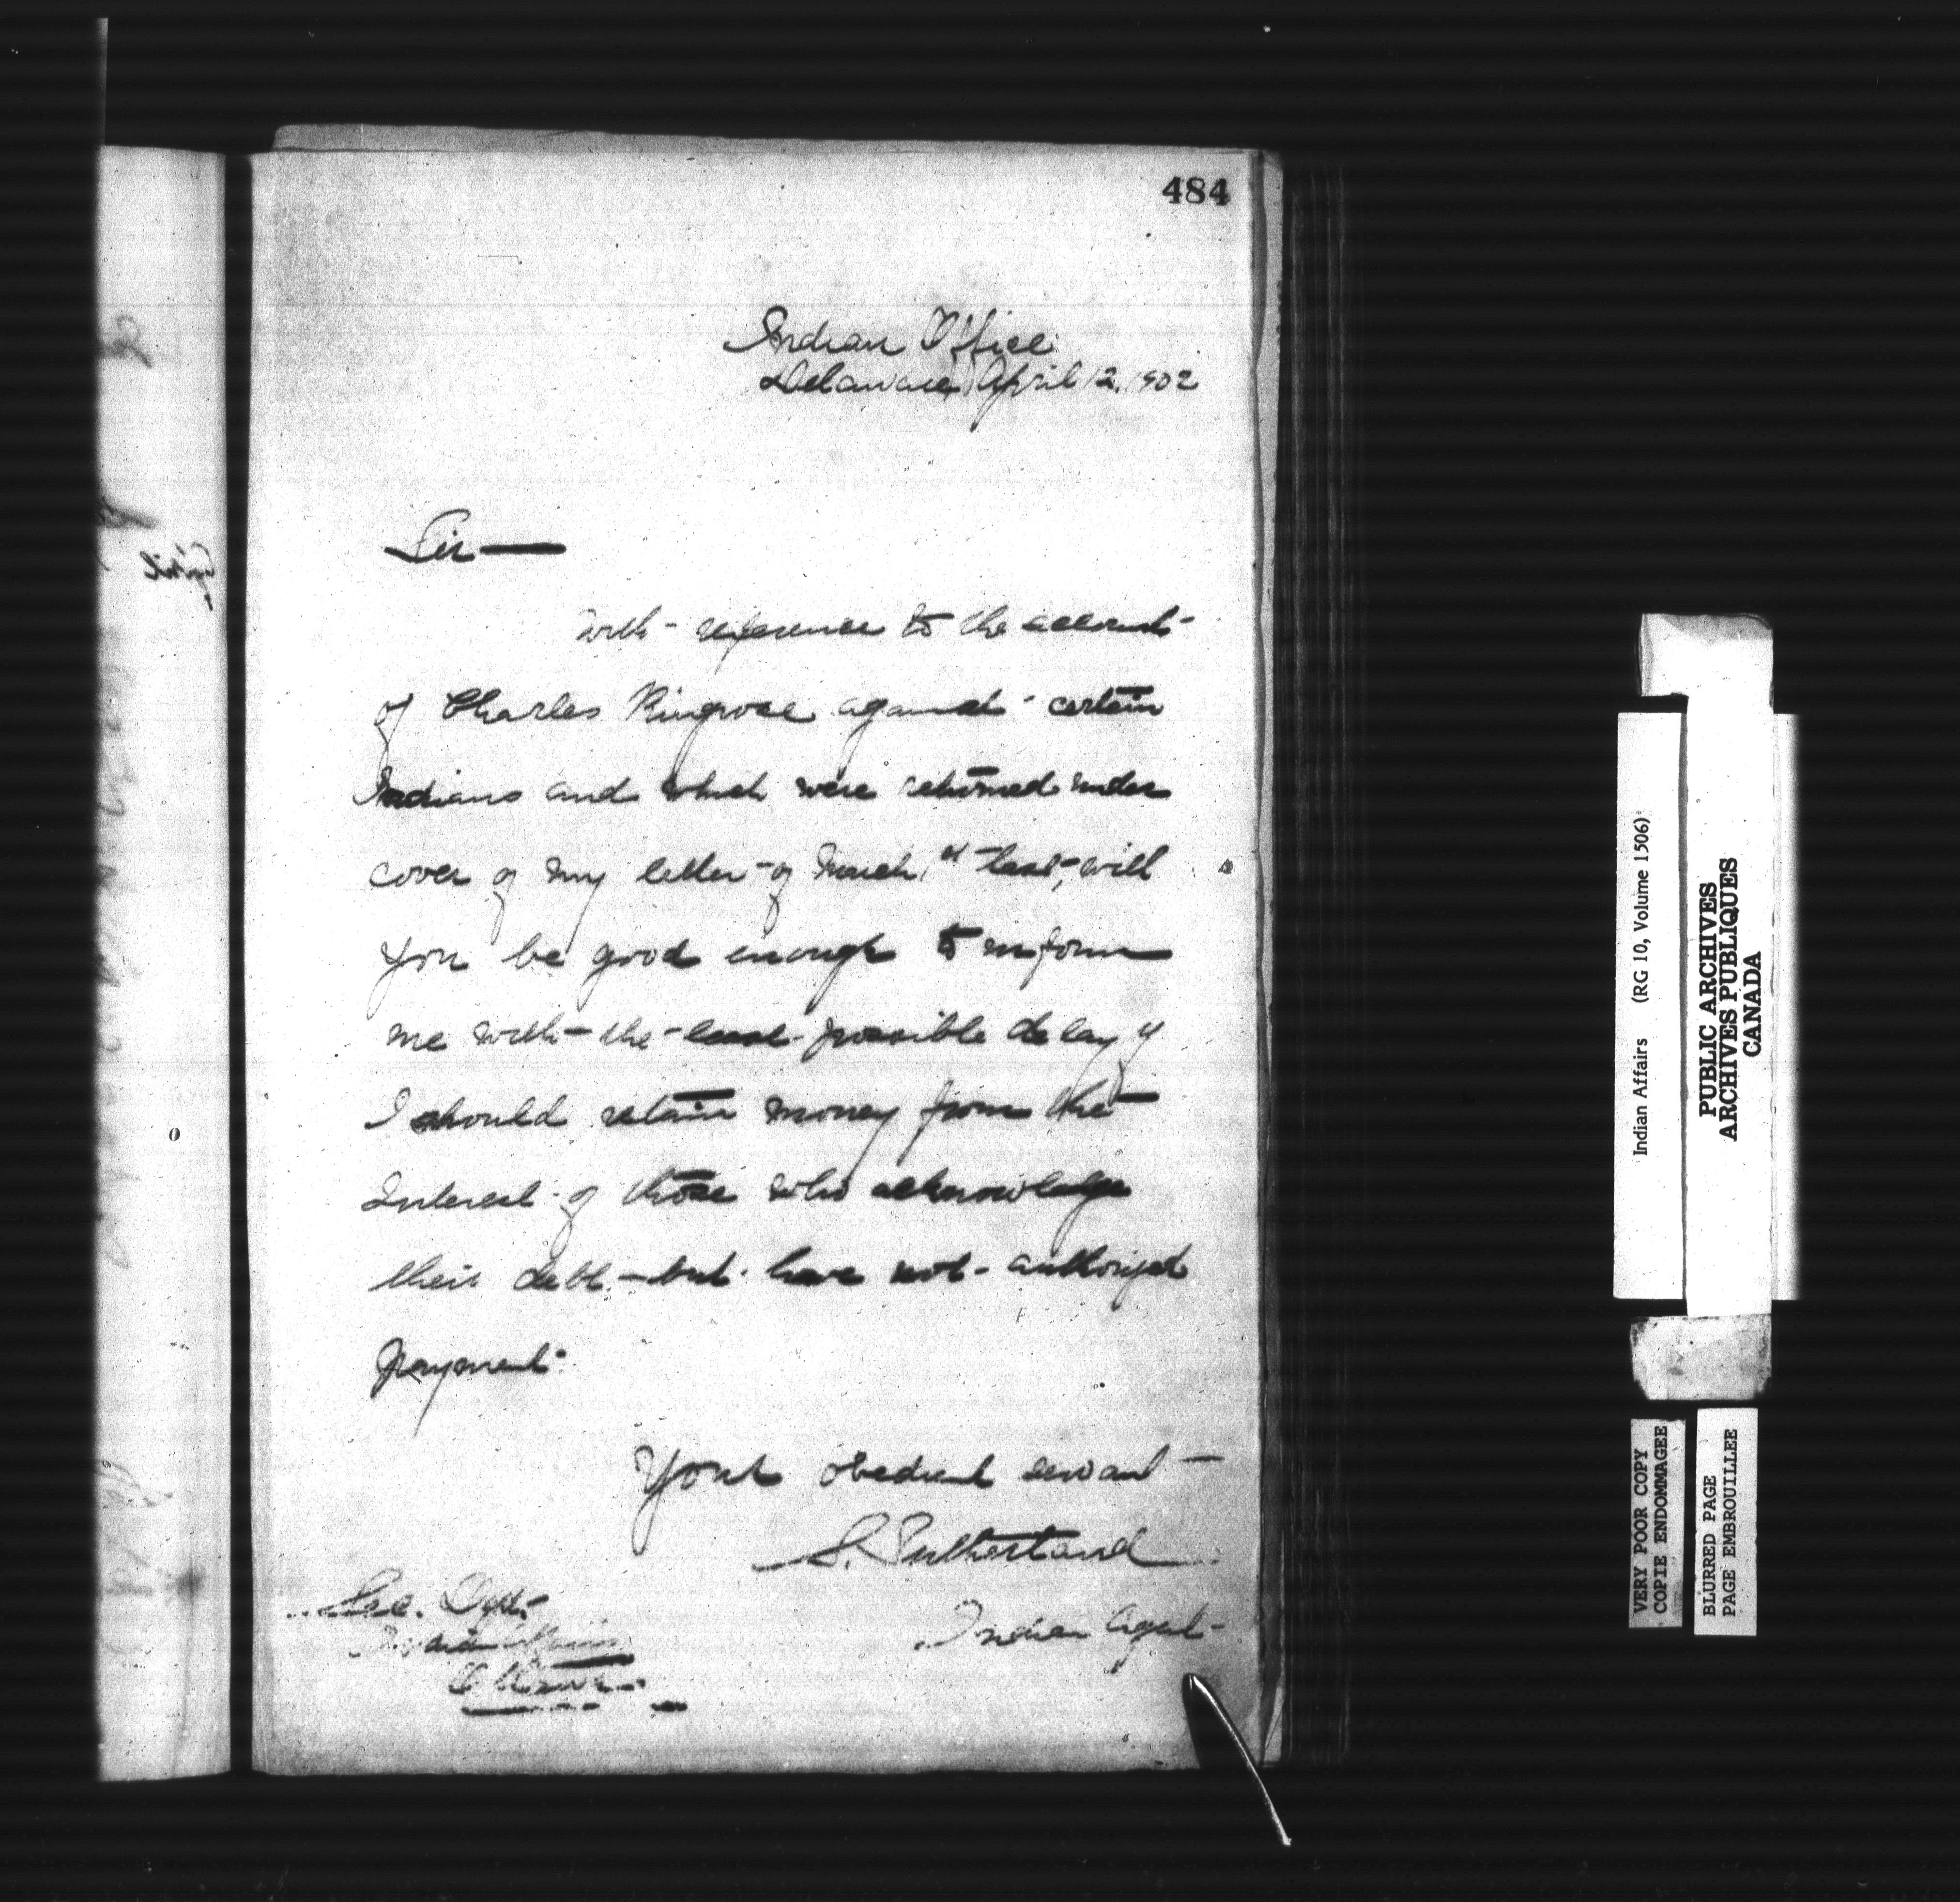 484
Indian Office
Delaware, April 12, 1902
Sir —
With reference to the account
of Charles Ringrose against certain
Indians and which were returned under
cover of my letter of March 1st last, will
you be good enough to inform
me with the least possible delay if
I should retain money from the
Interest of those who acknowledge
their debt but have not authorized
payment.
Your obedient servant
S. Sutherland
Indian Agent
Sec. Dept.
Indian Affairs
Ottawa
Indian Affairs (RG 10, Volume 1506)
PUBLIC ARCHIVES
ARCHIVES PUBLIQUES
CANADA
VERY POOR COPY
COPIE ENDOMMAGEE
BLURRED PAGE
PAGE EMBROUILLEE